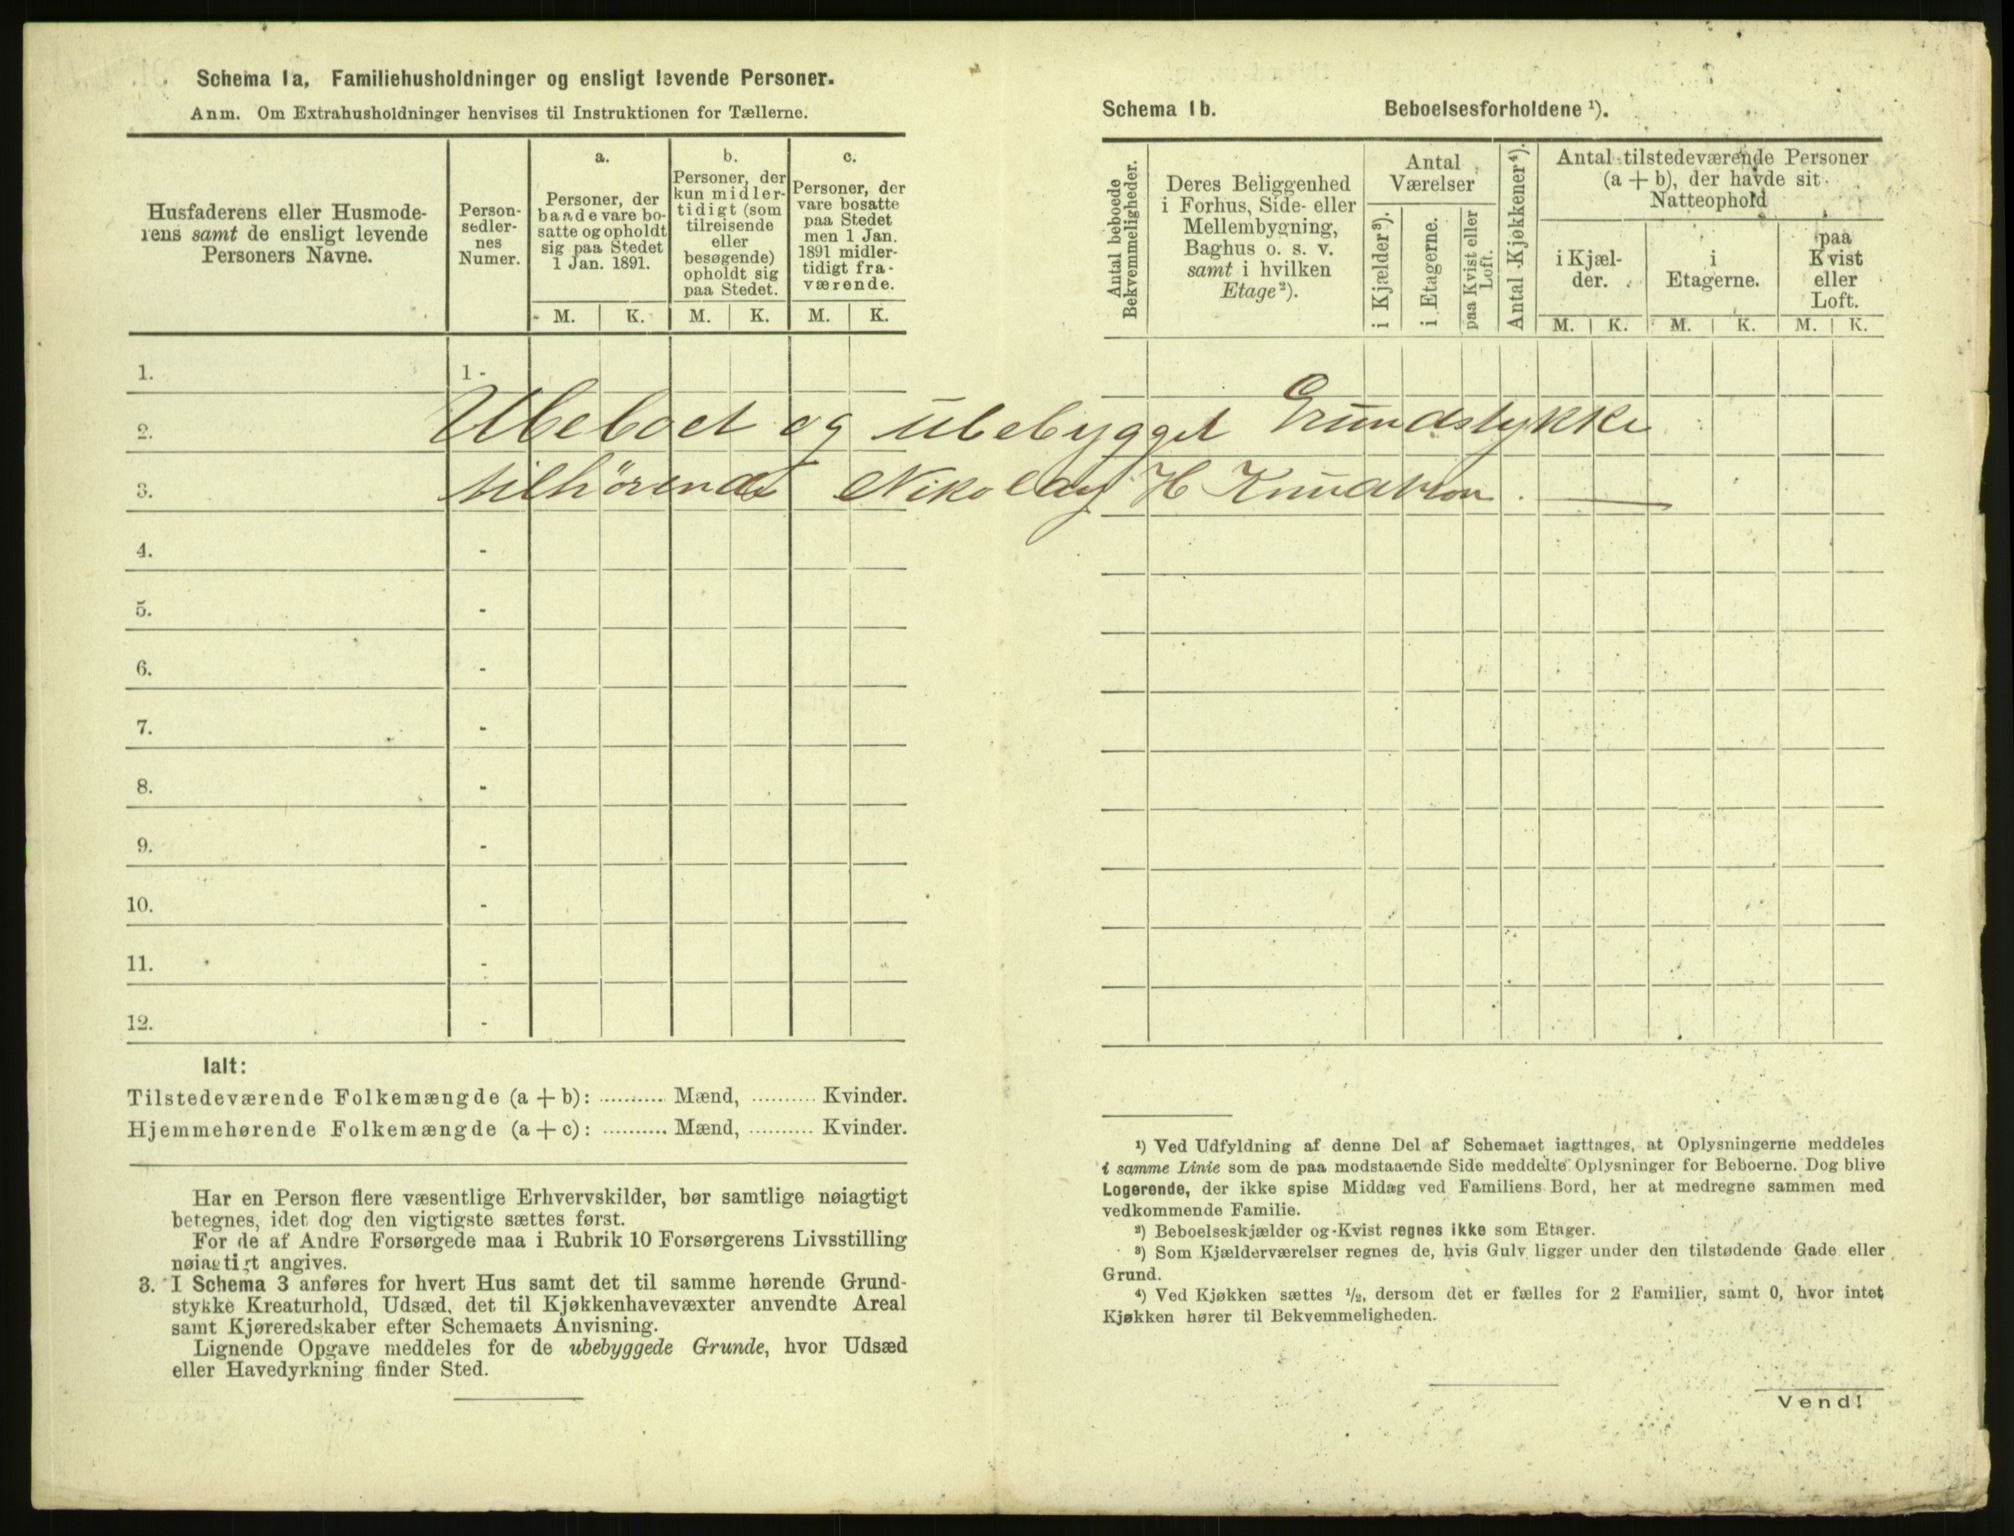 Schema 1a, Familiehusholdninger og ensligt levende Personer.
Anm. Om Extrahusholdninger henvises til Instruktionen for Tællerne.
Husfaderens eller Husmode-
rens samt de ensligt levende
Personers Navne.
Person-
sedler-
nes
Numer.
a.
Personer, der
baade vare bo-
satte og opholdt
sig paa Stedet
1 Jan. 1891.
b.
Personer, der
kun midler-
tidigt (som
tilreisende
eller
besøgende)
opholdt sig
paa Stedet.
c.
Personer, der
vare bosatte
paa Stedet
men 1 Jan.
1891 midler-
tidigt fra-
værende.
M. K. M. K. M. K.
1. 1 -
2.
3.
4. -
5. -
6. -
7. -
8. -
9. -
10. -
11. -
12. -
Ialt:
Tilstedeværende Folkemængde (a + b): .......... Mænd, .......... Kvinder.
Hjemmehørende Folkemængde (a + c): .......... Mænd, .......... Kvinder.
Har en Person flere væsentlige Erhvervskilder, bør samtlige nøiagtigt
betegnes, idet dog den vigtigste sættes først.
For de af Andre Forsørgede maa i Rubrik 10 Forsørgerens Livsstilling
nøiagtigt angives.
3. I Schema 3 anføres for hvert Hus samt det til samme hørende Grund-
stykke Kreaturhold, Udsæd, det til Kjøkkenhavevæxter anvendte Areal
samt Kjøreredskaber efter Schemaets Anvisning.
Lignende Opgave meddeles for de ubebyggede Grunde, hvor Udsæd
eller Havedyrkning finder Sted.
Schema 1b. Beboelsesforholdene ¹).
Antal beboede
Bekvemmeligheder.
Deres Beliggenhed
i Forhus, Side- eller
Mellembygning,
Baghus o. s. v.
samt i hvilken
Etage²).
Antal
Værelser
i Kjælder³).
i Etagerne.
paa Kvist eller
Loft.
Antal Kjøkkener⁴).
Antal tilstedeværende Personer
(a + b), der havde sit
Natteophold
i Kjæl-
der.
i
Etagerne.
paa
Kvist
eller
Loft.
M. K. M. K. M. K.
Ubeboet og ubebygget Grundstykke
tilhørende Nikolay H Knudtzon.
¹) Ved Udfyldning af denne Del af Schemaet iagttages, at Oplysningerne meddeles
i samme Linie som de paa modstaaende Side meddelte Oplysninger for Beboerne. Dog blive
Logerende, der ikke spise Middag ved Familiens Bord, her at medregne sammen med
vedkommende Familie.
²) Beboelseskjælder og Kvist regnes ikke som Etager.
³) Som Kjælderværelser regnes de, hvis Gulv ligger under den tilstødende Gade eller
Grund.
⁴) Ved Kjøkken sættes ½, dersom det er fælles for 2 Familier, samt 0, hvor intet
Kjøkken hører til Bekvemmeligheden.
Vend!